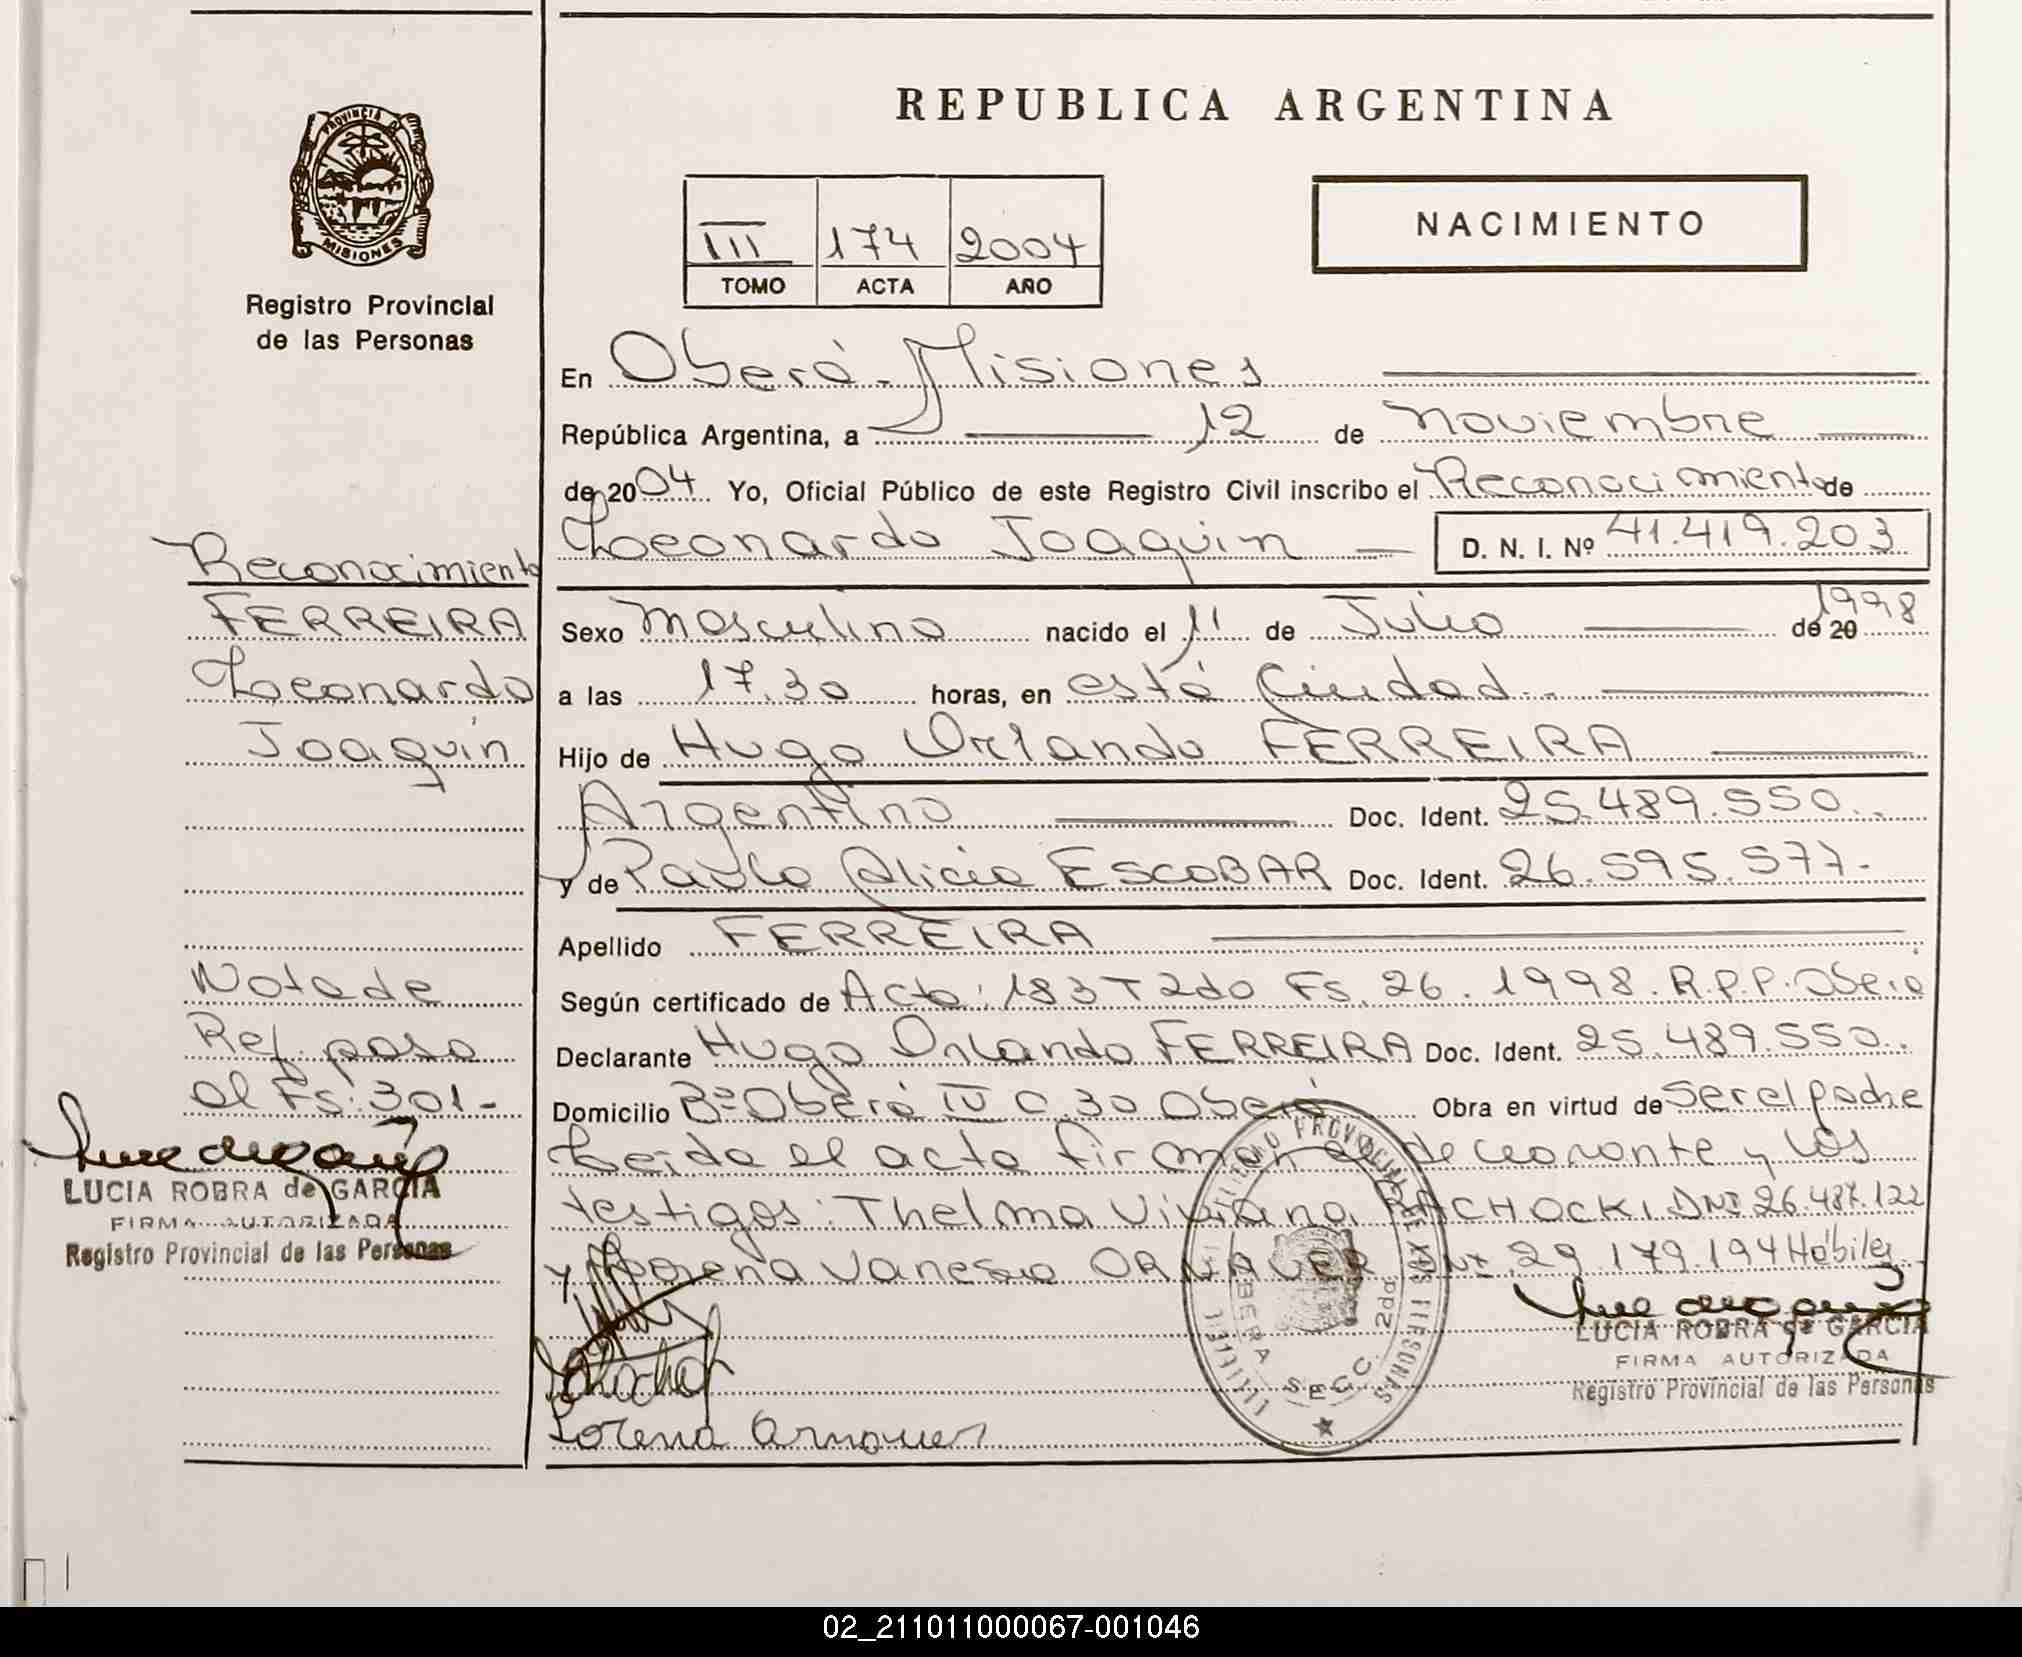 REPUBLICA ARGENTINA
PROVINCIA DE
MISIONES
Registro Provincial
de las Personas
III 174 2004
TOMO ACTA AÑO
NACIMIENTO
En Oberá - Misiones
República Argentina, a 12 de noviembre
de 2004 Yo, Oficial Público de este Registro Civil inscribo el Reconocimiento de
Leonardo Joaquin D. N. I. Nº 41.419.203
Sexo Masculino nacido el 11 de Julio de 20 1998
a las 17.30 horas, en esta Ciudad.
Hijo de Hugo Orlando FERREIRA
Argentino Doc. Ident. 25.489.550.
y de Paola Alicia ESCOBAR Doc. Ident. 26.595.577.-
Apellido FERREIRA
Según certificado de Acta: 183 T 2do Fs. 26. 1998. R.P.P. Oberá
Declarante Hugo Orlando FERREIRA Doc. Ident. 25.489.550.
Domicilio Bº Oberá IV C. 30 Oberá Obra en virtud de ser el padre
Leida el acta firman el declarante y los
testigos: Thelma Viviana DNI 26.487.122
y Lorena Vanesa DNI 29.179.194 Hábiles
Lorena
LUCIA ROBRA de GARCIA
FIRMA AUTORIZADA
Registro Provincial de las Personas
SECC. 2da
Reconocimiento
FERREIRA
Leonardo
Joaquín
Nota de
Ref. paso
al Fs: 301-
LUCIA ROBRA de GARCIA
FIRMA AUTORIZADA
Registro Provincial de las Personas
02_211011000067-001046